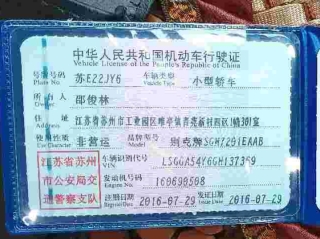 中华人民共和国机动车行驶证
Vehicle License of the People's Republic of China
号牌号码 苏E22JY6 车辆类型 小型轿车
Plate No. Vehicle Type
所有人 邵俊林
Owner
住址 江苏省苏州市工业园区唯亭镇青苑新村四区1幢301室
Address
使用性质 非营运 品牌型号 别克牌SGM7201EAAB
Use Character Model
江苏省苏州 车辆识别代号
VIN
市公安局交 发动机号码
Engine No.
通警察支队 注册日期 2016-07-29 发证日期 2016-07-29
Register Date Issue Date